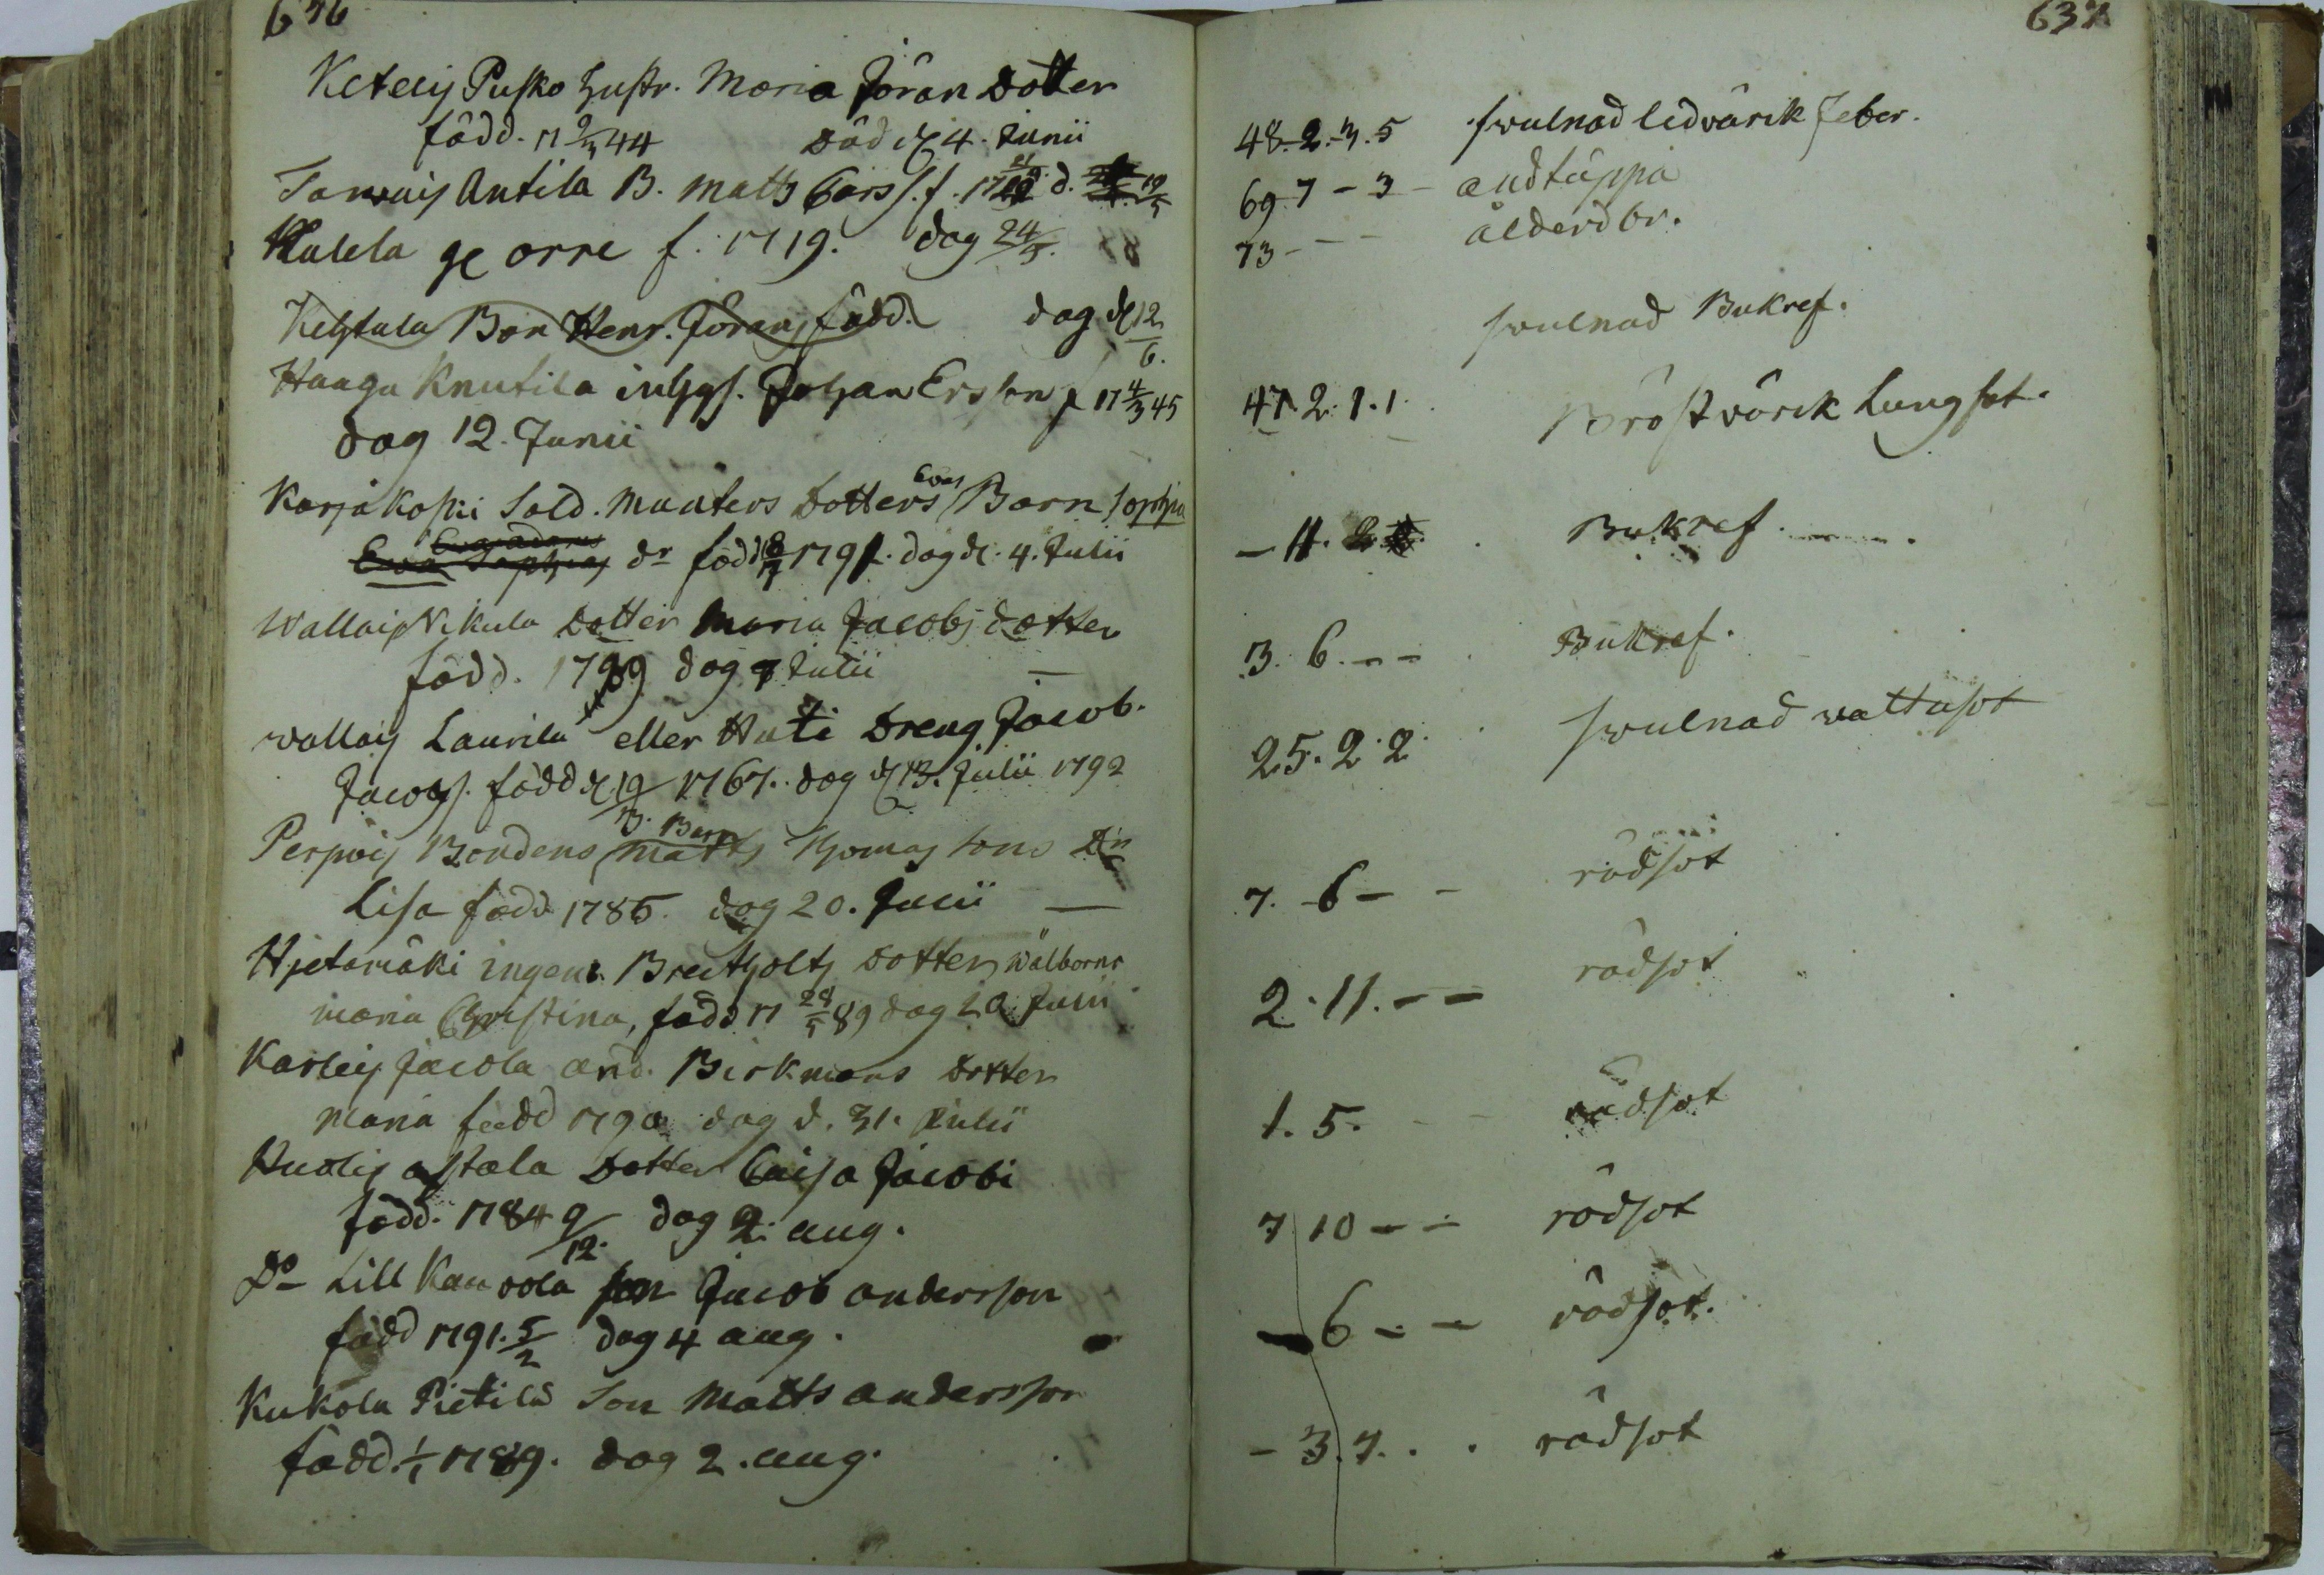 636
Keteeij Pusko hustr. Maria Jöran Dotter
född. 17 9/3 44 död d. 4. Junii
Antila B. Matts Carss. f. 17 d. 19/5
orre f. 1719. dog 24/5.
Bon Henr. Jörans född. dog d. 12/6.
Haaga Knutila inhys. Johan Ersson f 17 4/3 45
dog 12. Junii
Karjakoski Sold. Munters Dotters Evas Barn Sophia
dr född 8/7 1791. dog d. 4. Julii
Wallaij Nikula Dotter Maria Jacobs dotter
född. 1789 dog 7 Julii
Wallaij Laurila eller Huti Dreng Jacob.
Jacobs. född d. 19/3 1767. dog d. 13. Julii 1792
Bondens Matts B. Barn Thomas sons Dr
Lisa född 1785. dog 20. Julii
Hjetamäki ingeni. Breitholtz Dotter Wälborne
Maria Christina, född 17 28/5 89 dog 20 Julii
Karleij Jacola And. Birkmans Dotter
Maria född 1790 dog d. 31. Julii
astala Dotter Caisa Jacobi
född. 1784 9/12. dog 2. aug.
Do Lill Kauvola son Jacob andersson
född 1791. 5/2 dog 4 aug.
Kukola Pietila Son Matts andersson
född. 1/1 1789. dog 2. aug.
637
48. 2. 3. 5 swulnad ledvärck feber.
69 7 - 3 - andtäppa
73 - - - ålderd br.
swulnad Bukref.
47. 2. 1. 1. Bröstvärck Lungsot.
- 11. Bukref.
3. 6. - - Bukref.
25. 2. 2. swulnad wattusot
7. 6 - - rödsot
2. 11. - - rödsot
1. 5. - - rödsot
7 10 - - rödsot
- 6 - - rödsot.
- 3. 7. . . rödsot